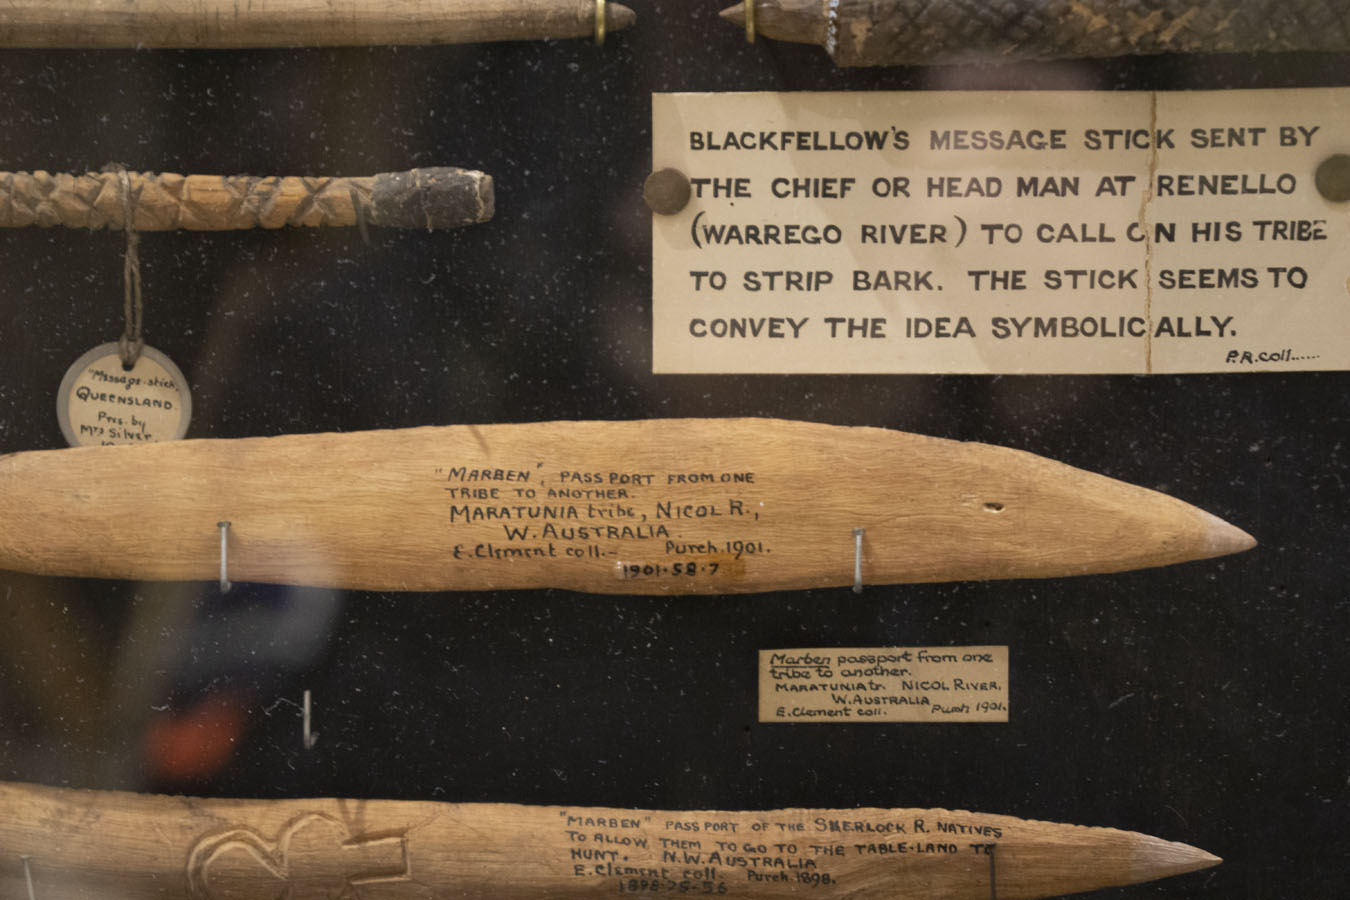 BLACKFELLOW'S MESSAGE STICK SENT BY
THE CHIEF OR HEAD MAN AT RENELLO
(WARREGO RIVER) TO CALL ON HIS TRIBE
TO STRIP BARK. THE STICK SEEMS TO
CONVEY THE IDEA SYMBOLICALLY.
P.R. coll......
"Message-stick,
QUEENSLAND.
Pres. by
Mrs Silver.
"MARBEN", PASSPORT FROM ONE
TRIBE TO ANOTHER.
MARATUNIA tribe, NICOL R.,
W. AUSTRALIA.
E. Clement coll.- Purch. 1901.
1901.58.7
Marben passport from one
tribe to another.
MARATUNIA tr. NICOL RIVER.
W. AUSTRALIA
E. Clement coll. Purch 1901.
"MARBEN" PASSPORT OF THE SHERLOCK R. NATIVES
TO ALLOW THEM TO GO TO THE TABLE-LAND TO
HUNT. N.W. AUSTRALIA
E. Clement coll. Purch. 1898.
1898-75-56